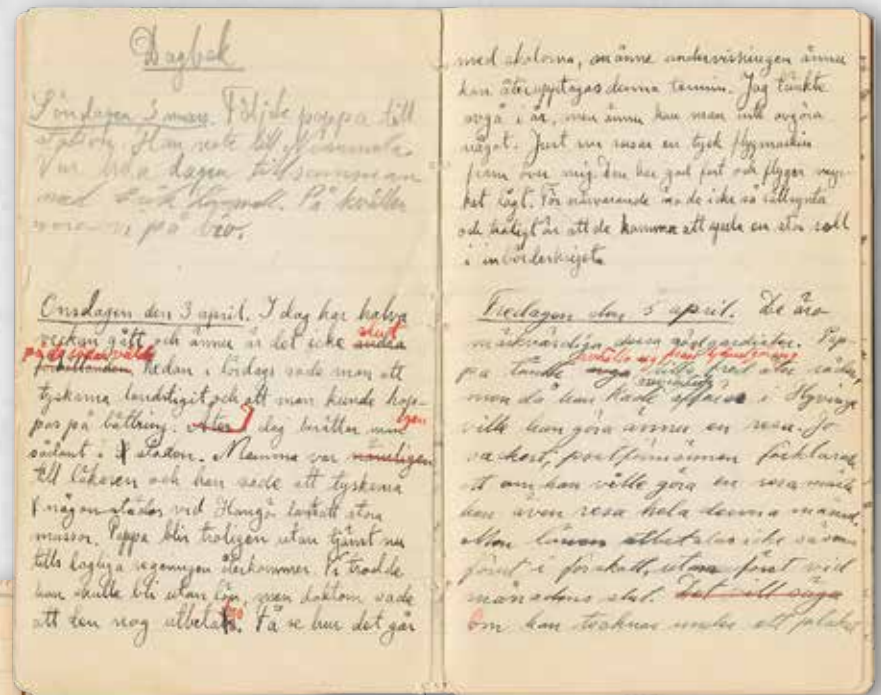 Dagbok
Söndagen 3 mars. Följde pappa till
station. Han reste till
Var hela dagen tillsammans
med Erik På kvällen
på bio.
Onsdagen den 3 april. I dag har halva
veckan gått och ännu är det icke andra slut
på de sista förhållanden. Redan i lördags sade man att
tyskarna landstigit och att man kunde hop-
pas på bättring. Åter i dag berättar man igen
sådant i staden. Mamma var nämligen
till läkaren och han sade att tyskarna
någonstädes vid Hangö landsatt stora
massor. Pappa blir troligen utan tjänst nu
tills lagliga regeringen återkommer. Vi trodde
han skulle bli utan lön, men doktorn sade
att den nog utbetalas. Få se hur det går
med skolorna, om änne undervisningen ännu
kan återupptagas denna termin. Jag tänkte
i år, men ännu kan man intet avgöra
något. Just nu susar en tysk flygmaskin
fram över mig. Den har god fart och flyger myc-
ket lågt. För närvarande äro de icke så
och troligt är att de komma att spela en stor roll
i inbördeskriget.
Fredagen den 5 april. De äro
märkvärdiga dessa rödgardister. Pap-
pa tänkte tills fred åter råder,
men då han hade affärer i Hyvinge
ville han göra ännu en resa. Jo
va kost; postförmannen förklarade
att om han ville göra en resa måste
han även resa hela denna månad.
Men lönen utbetalas icke såsom
förut i förskott, utan först vid
månadens slut. Det vill säga
Om han tecknar under ett plakat